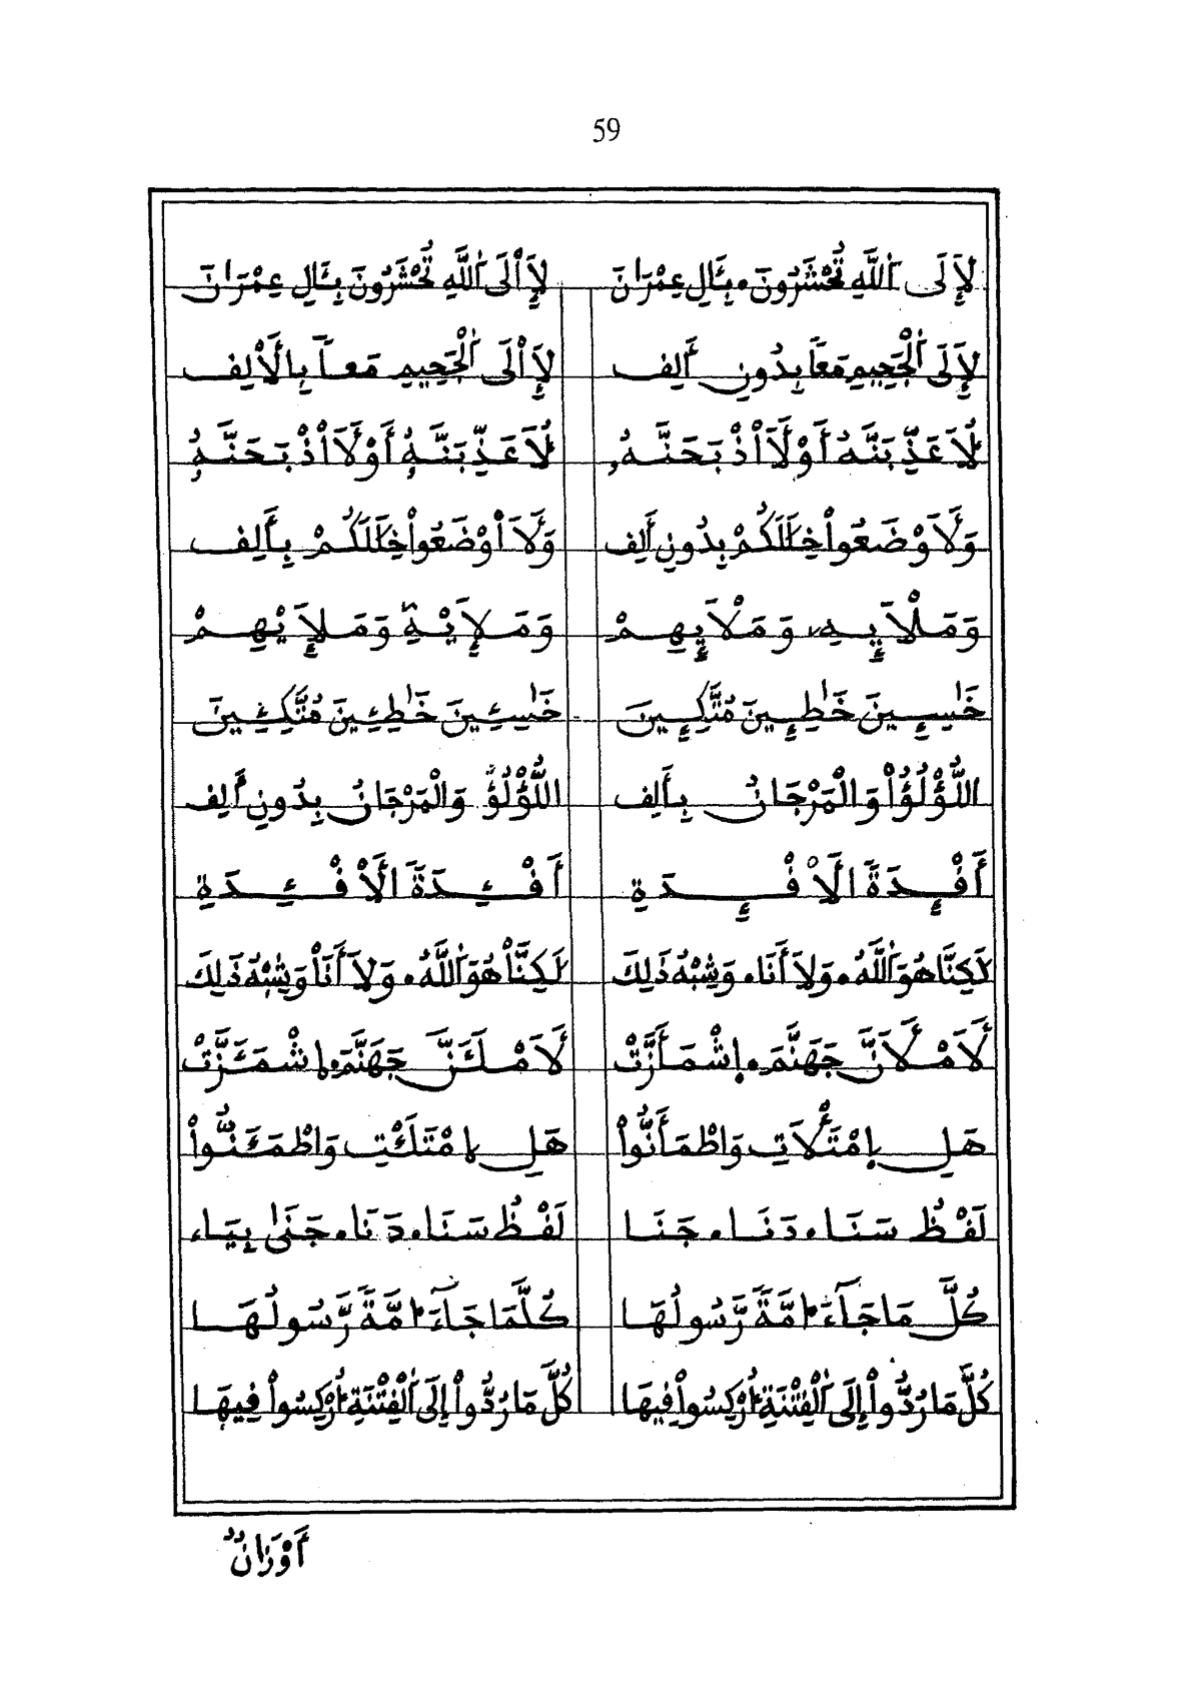 59
لَإِلَى اَ۬للَّهِ تُحْشَرُونَ • بِـَٔالِ عِمْرَانَ لَإِاْلَى اَ۬للَّهِ تُحْشَرُونَ بِـَٔالِ عِمْرَانَ
لَإِلَى اَ۬لْجَحِيمِ مَعاَ بِدُونِ أَلِف لَإِاْلَى اَ۬لْجَحِيمِ مَعاَ بِالْأَلِف
لَأُعَذِّبَنَّهُۥ أَوْ لَأَاْذْبَحَنَّهُۥ لَأُعَذِّبَنَّهُۥ أَوْ لَأَاْذْبَحَنَّهُۥ
وَلَأَوْضَعُواْ خِلَٰلَكُمْ بِدُونِ أَلِف وَلَأَاْوْضَعُواْ خِلَٰلَكُمْ بِأَلِف
وَمَلَإِيْهِۦ وَمَلَإِيْهِمْ وَمَلَإِيْهِۦ وَمَلَإِيْهِمْ
خَٰسِـِٕينَ خَٰطِـِٕينَ مُتَّكِـِٕينَ خَٰسِئِينَ خَٰطِئِينَ مُتَّكِئِينَ
اللُّؤْلُؤُاْ وَالْمَرْجَانُ بِأَلِف اللُّؤْلُؤُ وَالْمَرْجَانُ بِدُونِ أَلِف
أَفْـِٕدَةَ الَأْفْـِٕدَةِ أَفْئِدَةَ الَأْفْئِدَةِ
لَكِنَّا هُوَ اَ۬للَّهُ • وَلاَ أَنَا • وَشِبْهُ ذَٰلِكَ لَكِنَّاْ هُوَ اَ۬للَّهُ • وَلاَ أَنَاْ وَشِبْهُ ذَٰلِكَ
لَأَمْلَأَنَّ جَهَنَّمَ • اِشْمَأَزَّتْ لَأَمْلَـَٔنَّ جَهَنَّمَ • اِشْمَـَٔزَّتْ
هَلِ اِمْتَلَأْتِ وَاطْمَأَنُّواْ هَلِ اِمْتَلَـْٔتِ وَاطْمَـَٔنُّواْ
لَفْظُ سَنَا • دَنَا • جَنَا لَفْظُ سَنَا • دَنَا • جَنَىٰ بِيَاء
كُلَّ مَا جَآءَ امَّةً رَّسُولُهَا كُلَّمَا جَآءَ امَّةً رَّسُولُهَا
كُلَّ مَا رُدُّواْ إِلَى اَ۬لْفِتْنَةِ أُرْكِسُواْ فِيهَا كُلَّ مَا رُدُّواْ إِلَى اَ۬لْفِتْنَةِ أُرْكِسُواْ فِيهَا
أَوْزَانٌ